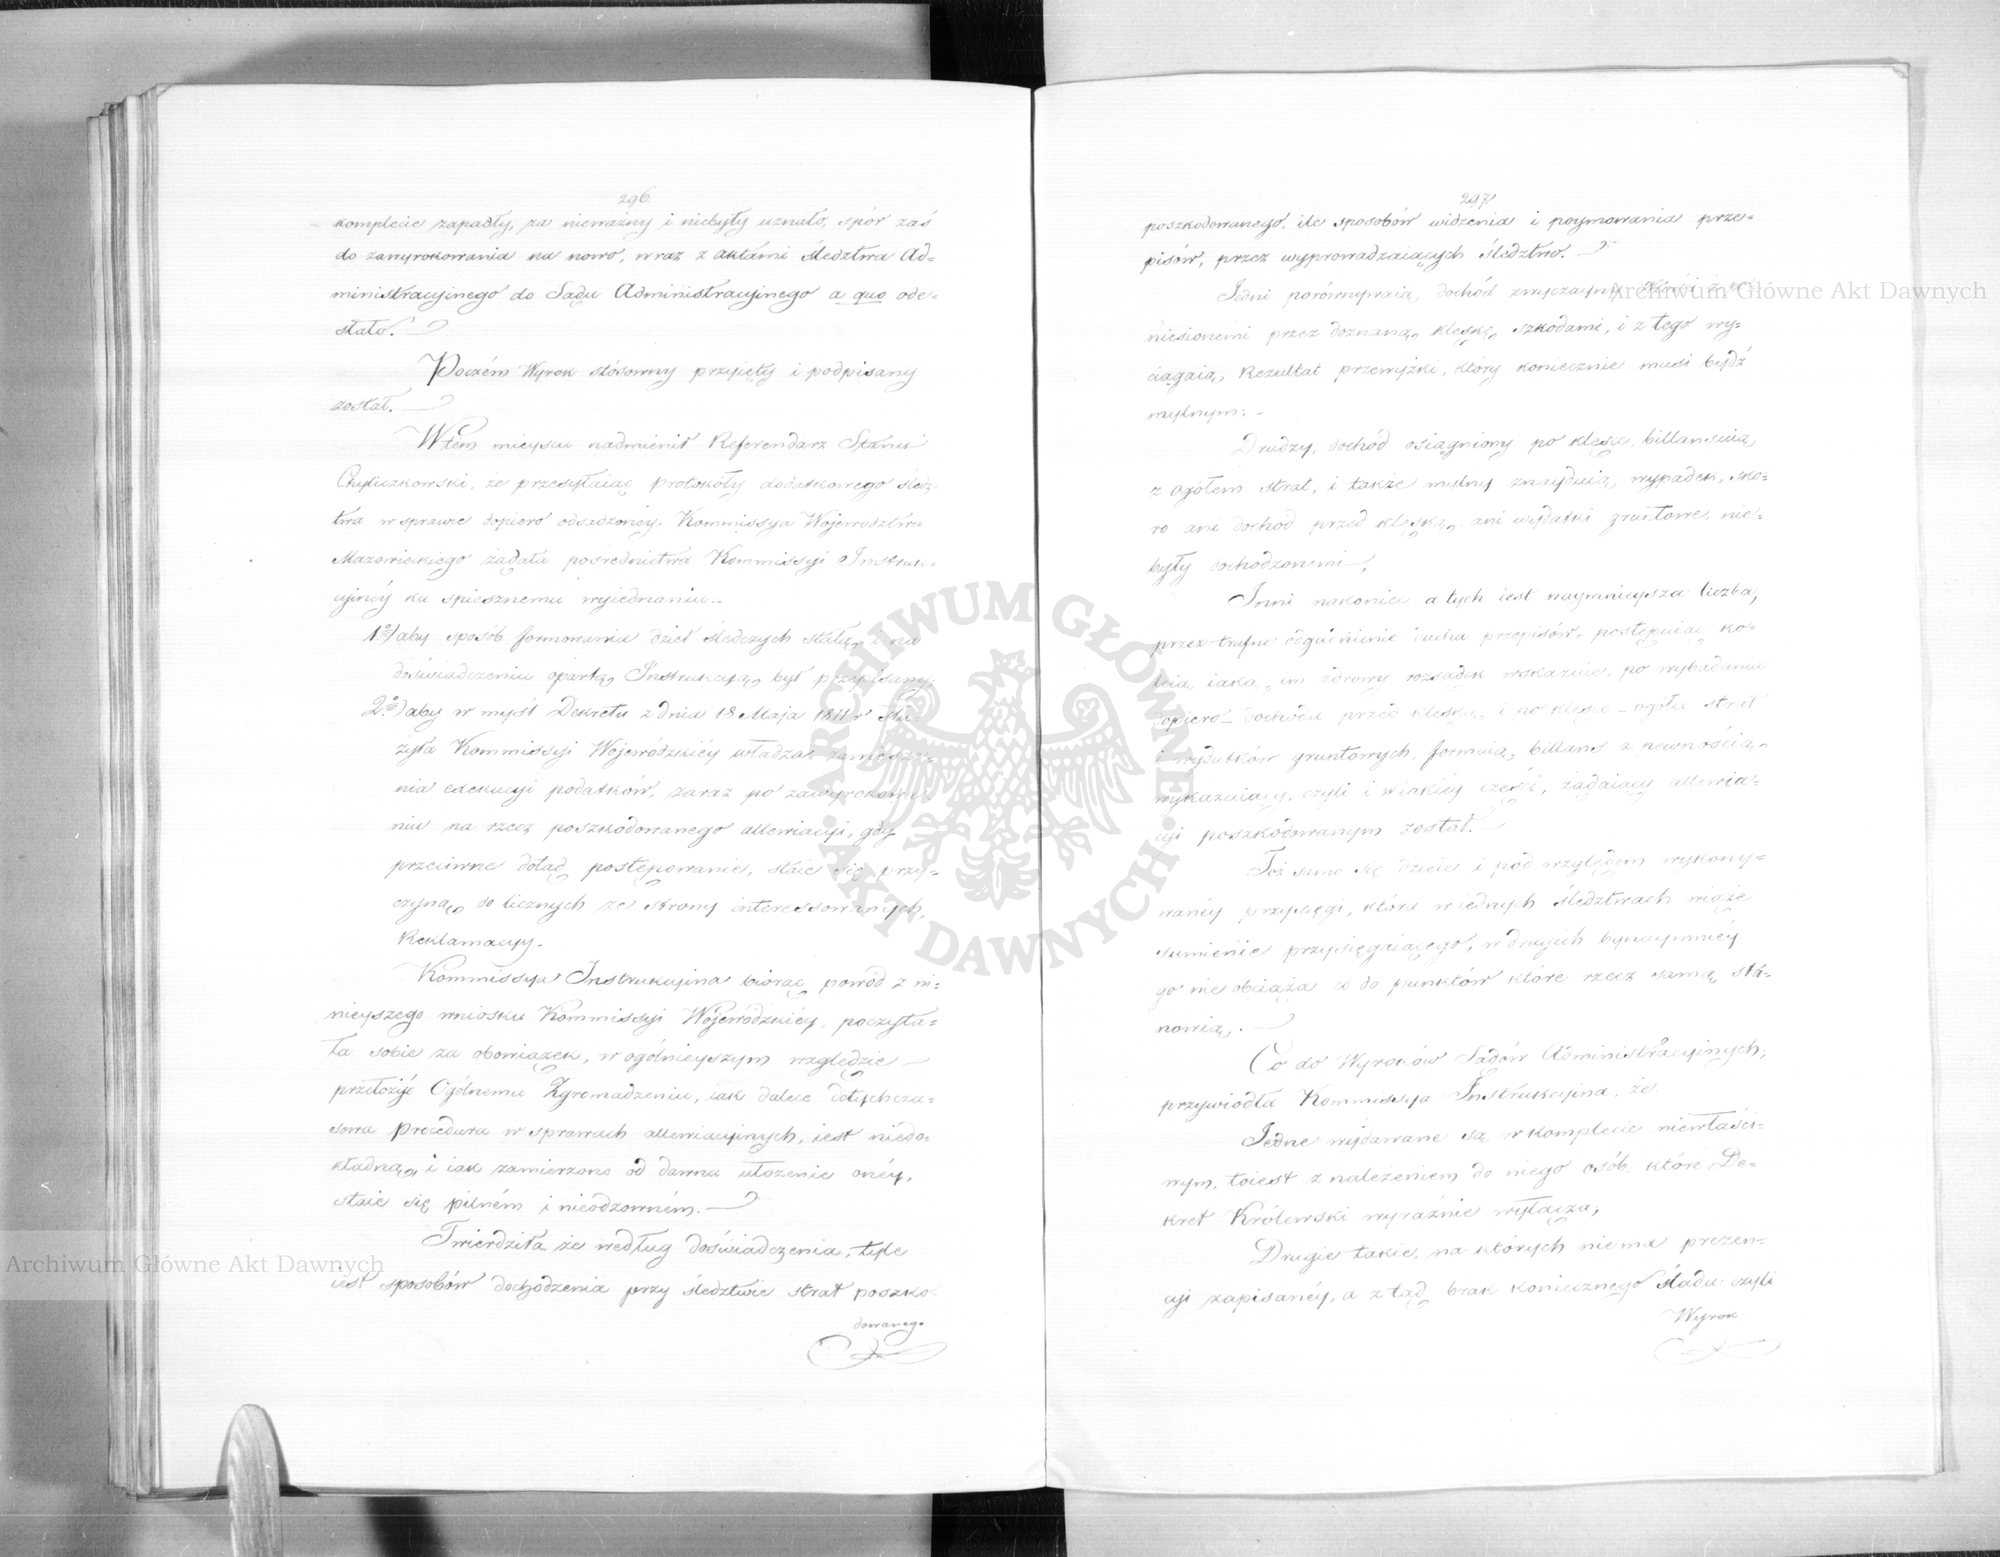 296.
komplecie zapadły, za nieważny i niebyły uznało, spór zaś
do zawyrokowania na nowo, wraz z aktami śledztwa Ad-
ministracyjnego do Sądu Administracyjnego a quo ode-
słało.
Poczém Wyrok stósowny przyięty i podpisany
został.
W tém mieyscu nadmienił Referendarz Stanu
Chyliczkowski, że przesyłaiąc protokóły dodatkowego śledz-
twa w sprawie dopiero odsądzonéy, Kommissya Województwa
Mazowieckiego żądała pośrednictwa Kommissyi Instruk-
cyinéy ku spiesznemu wyiednaniu:
1º) aby sposób formowania dzieł śledczych stałą, i na
doświadczeniu opartą Instrukcyą, był przepisany;
2º) aby w myśl Dekretu z dnia 18 Maja 1811 r. słu-
żyła Kommissyi Wojewódzkiéy władza zawiesze-
nia exekucyi podatków, zaraz po zawyrokowa-
niu na rzecz poszkodowanego allewiacyi, gdy
przeciwne dotąd postępowanie, staie się przy-
czyną, do licznych ze strony interessowanych,
Reklamacyy.
Kommissya Instrukcyina biorąc powód z ni-
nieyszego wniosku Kommissyi Wojewódzkiéy, poczyta-
ła sobie za obowiązek, w ogólnieyszym względzie
przełożyć Ogólnemu Zgromadzeniu, iak dalece dotychcza-
sowa procedura w sprawach allewiacyinych, iest niedo-
kładną, i iak zamierzone od dawna ułożenie onéy,
staie się pilném i nieodzowném.
Twierdziła, że według doświadczenia, tyle
iest sposobów dochodzenia przy śledztwie strat poszko-
dowanego
297.
poszkodowanego, ile sposobów widzenia i poymowania prze-
pisów, przez wyprowadzaiących śledztwo.
Jedni porównywaią, dochód zwyczayny
niesionemi przez doznaną, klęskę, szkodami, i z tego wy-
ciągaią, Rezultat przewyżki, który koniecznie musi bydź
mylnym;
Drudzy, dochód osiągniony po klęsce, billansuią,
z ogółem strat, i także mylny znayduią, wypadek, sko-
ro ani dochód przed klęską, ani wydatki gruntowe, nie-
były dochodzonemi;
Inni nakoniec a tych iest naymnieysza liczba,
przez trafne odgadnienie ducha przepisów, postępuiąc ko-
leią, iaką, im zdrowy rozsądek wskazuie, po wybadaniu
dopiero dochodu przed klęską, i po klęsce, ogółu strat
i wydatków gruntowych, formuią, billans z pewnością,
wykazuiący, czyli i w iakiéy części, żądaiący allewia-
cyi poszkodowanym został.
Toż samo się dzieie i pod względem wykony-
wanéy przysięgi, która w iednych śledztwach wiąże
sumienie przysięgaiącego, w drugich bynaymniéy
go nie obciąża co do punktów które rzecz samą sta-
nowią.
Co do Wyroków Sądów Administracyinych;
przywiodła Kommissya Instrukcyina, że
Jedne wydawane są, w komplecie niewłaści-
wym, toiest z należeniem do niego osób, które De-
kret Królewski wyraźnie wyłącza;
Drugie takie, na których niema prezen-
cyi zapisanéy, a ztąd brak koniecznego śladu czyli
Wyrok
Archiwum Główne Akt Dawnych
Archiwum Główne Akt Dawnych
ARCHIWUM GŁÓWNE AKT DAWNYCH